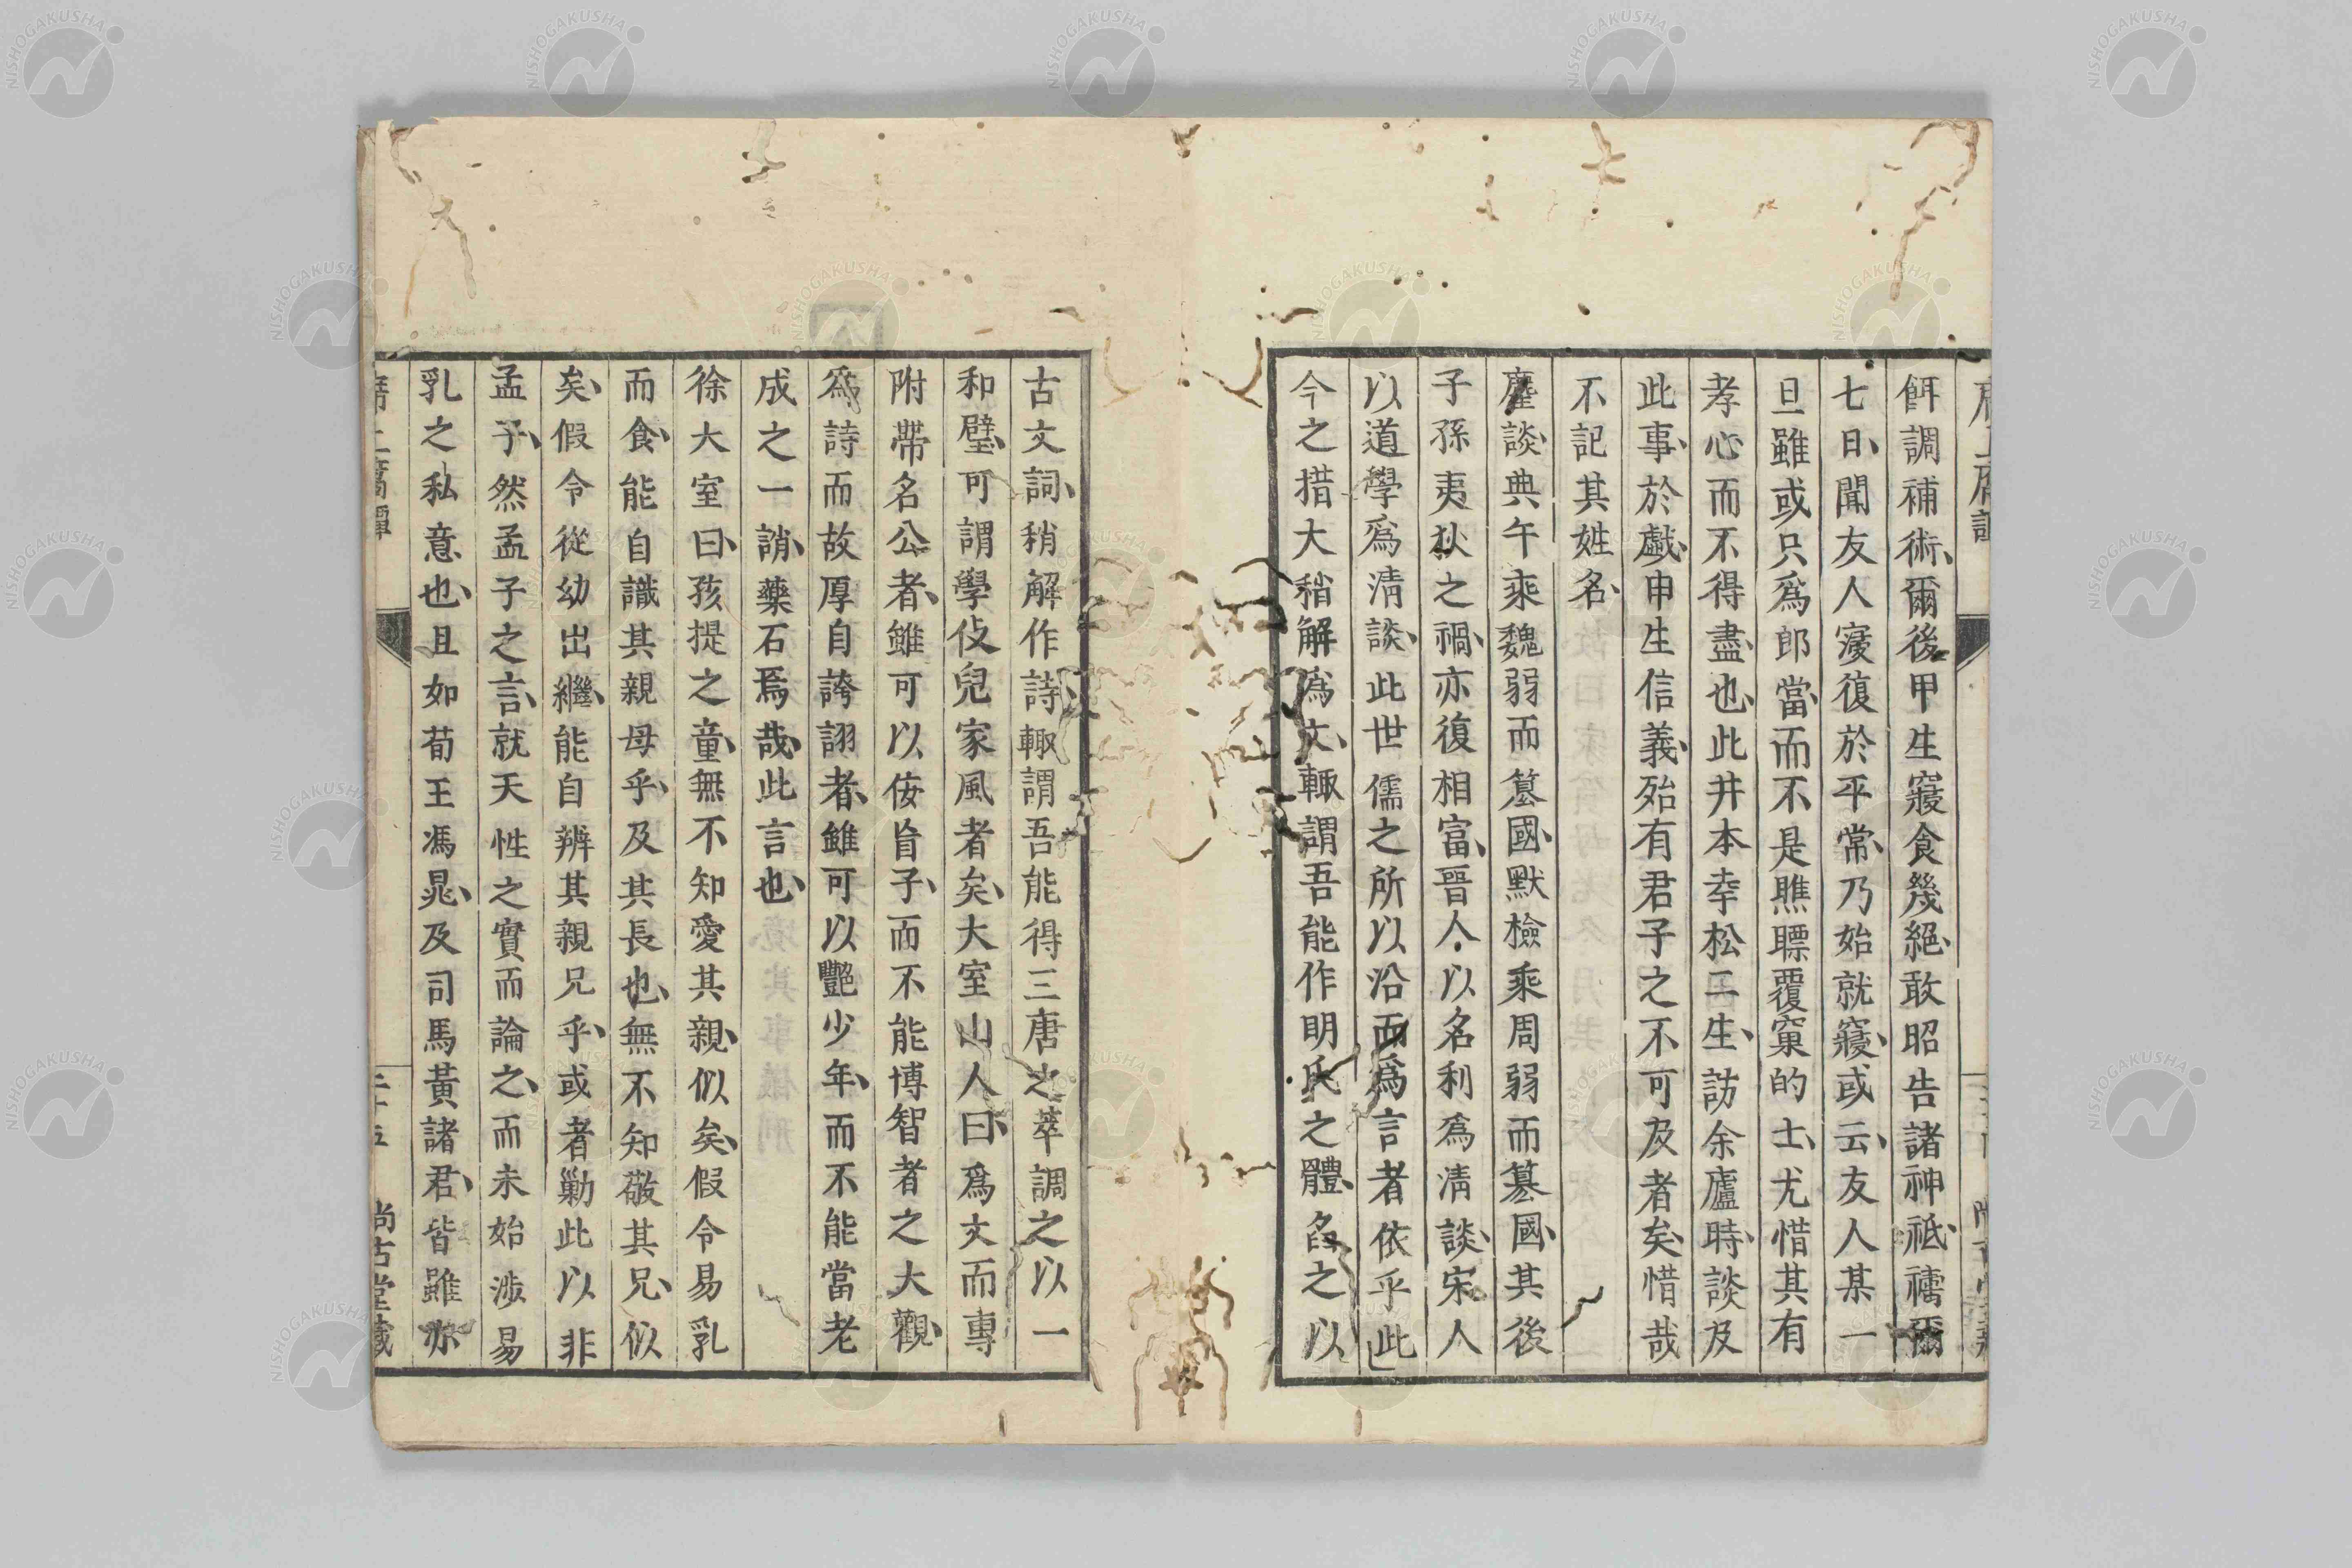 餌調補術、爾後甲生寢食幾絕、敢昭告諸神祗、禱爾
七日、聞友人寢復於平常、乃始就寢、或云、友人某一
旦雖或只爲郎當、而不是瞧瞟覆窠的士、尤惜其有
孝心而不得盡也、此井本幸松二生、訪余廬時、談及
此事、於戲、申生信義、殆有君子之不可及者矣、惜哉
不記其姓名、
麈談、典午乘魏弱而簒國、默檢乘周弱而簒國、其後
子孫夷狄之禍、亦復相富、晉人以名利爲淸談、宋人
以道學爲淸談、此世儒之所以沿而爲言者依乎此
今之措大稍解爲文、輙謂吾能作明氏之體、名之以
古文詞、稍解作詩、輙謂吾能得三唐之萃調之以一
和璧、可謂學伎兒家風者矣、大室山人曰、爲文而專
附帶名公者、雖可以侫盲子、而不能博智者之大觀、
爲詩而故厚自誇詡者、雖可以艷少年、而不能當老
成之一誚、藥石焉哉、此言也、
徐大室曰、孩提之童、無不知愛其親、似矣、假令易乳
而食、能自識其親母乎、及其長也、無不知敬其兄、似
矣、假令從幼出繼、能自辨其親兄乎、或者勦此以非
孟子、然孟子之言、就天性之實而論之、而未始涉易
乳之私意也、且如荀王馮晁、及司馬黃諸君、皆雖亦
二十五
尚古堂藏